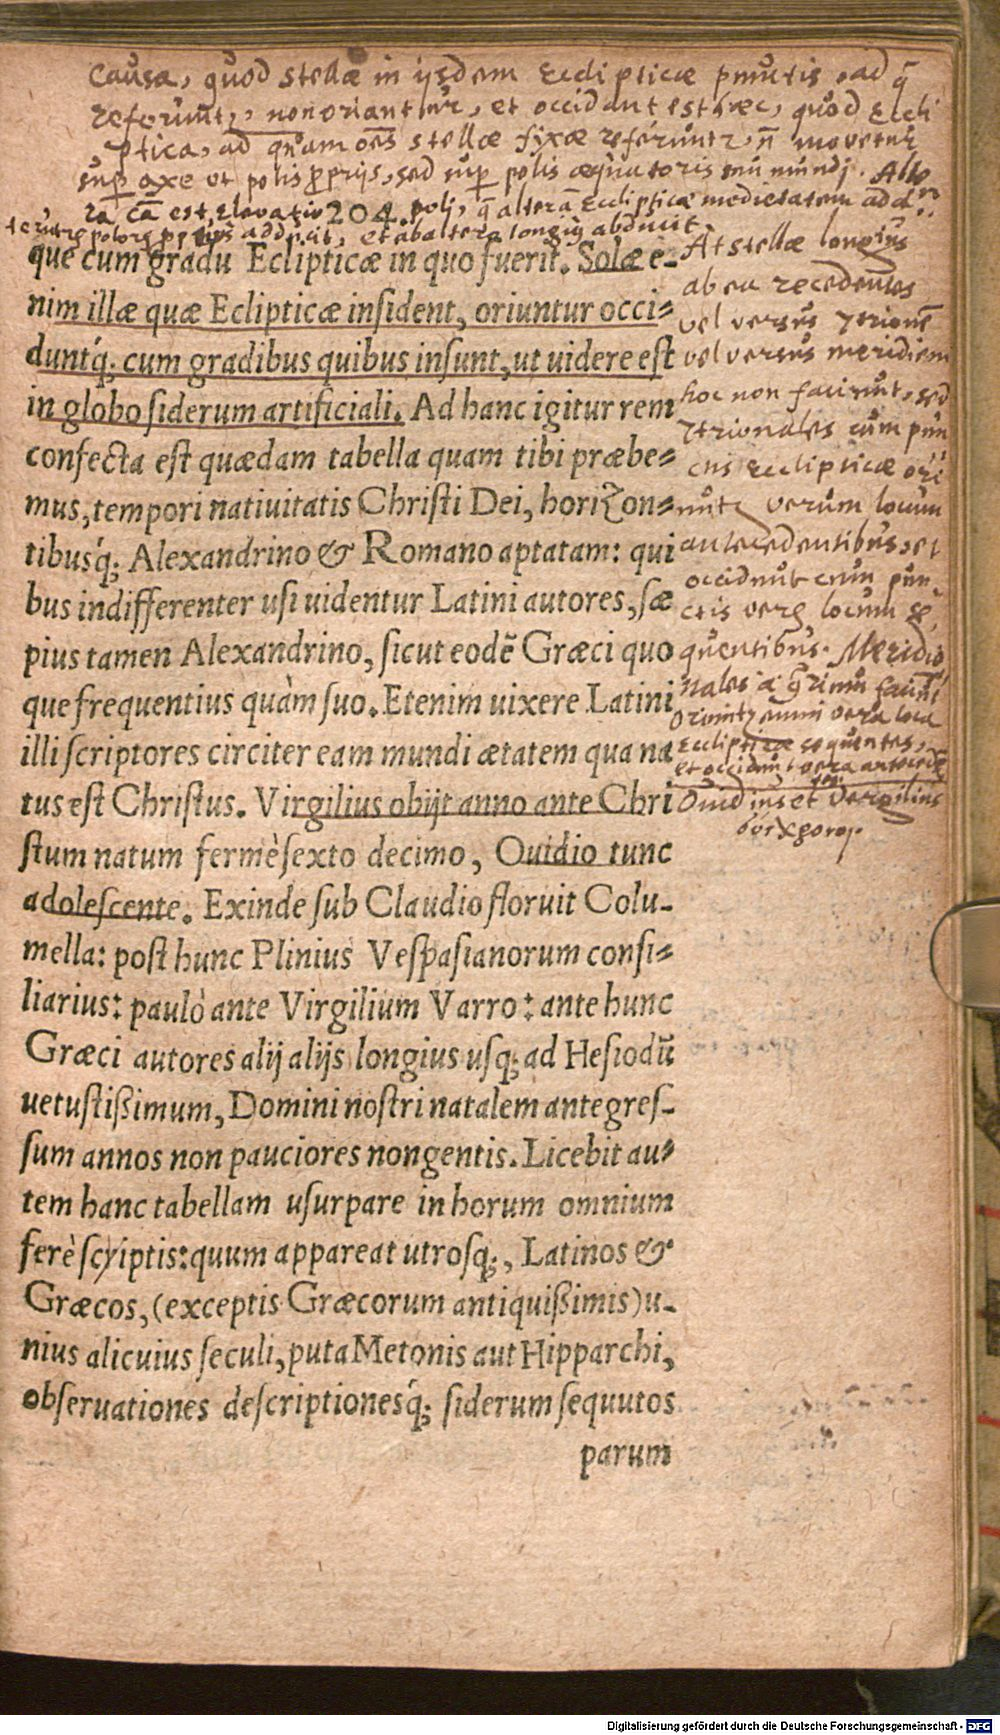 Causa, quod stellæ in ijsdem Eccliptiçæ pũctis, ad q̃
referũnt, non oriantur, et occidant est hæc, quod Eccli
ptica, ad quam oẽs stellæ fixæ referuntr, ñ movetur
sup axe ut polis proprijs, sed sup polis æquatoris mundj. Alte
ra cã est, Elevatio polj, q̃ alterã Eccliptiçæ medietatem
204.
adducit, et ab altera longiq abducit
que cum gradu Eclipticæ in quo fuerit. Solæ e-
nim illæ quæ Eclipticæ insident, oriuntur occi-
duntq́; cum gradibus quibus insunt, ut uidere est
in globo siderum artificiali. Ad hanc igitur rem
confecta est quædam tabella quam tibi præbe-
mus, tempori natiuitatis Christi Dei, horizon-
tibusq́; Alexandrino & Romano aptatam: qui
bus indifferenter usi uidentur Latini autores, sæ
pius tamen Alexandrino, sicut eodẽ Græci quo
que frequentius quàm suo. Etenim uixere Latini
illi scriptores circiter eam mundi ætatem qua na
tus est Christus. Virgilius obijt anno ante Chri
stum natum fermè sexto decimo, Ouidio tunc
adolescente. Exinde sub Claudio floruit Colu-
mella: post hunc Plinius Vespasianorum consi-
liarius: paulò ante Virgilium Varro: ante hunc
Græci autores alij alijs longius usq; ad Hesiodũ
uetustißimum, Domini nostri natalem antegres-
sum annos non pauciores nongentis. Licebit au-
tem hanc tabellam usurpare in horum omnium
ferè scriptis: quum appareat utrosq;, Latinos &
Græcos, (exceptis Græcorum antiquißimis) u-
nius alicuius seculi, puta Metonis aut Hipparchi,
obseruationes descriptionesq́; siderum sequutos
parum
At stellæ longius
ab ea recedentes
vel versus 7trionẽ
vel versus meridiem
hoc non faciunt, sed
7trionales cum pun
ctis Ecclipticæ ori
unt verum locum
antecedentibus, et
occidunt cum pun
ctis locum se
quentibus. Meridio
nales
vera loca
Ecclipticæ sequentes,
et occidunt vera
Ovidius et Vergilius